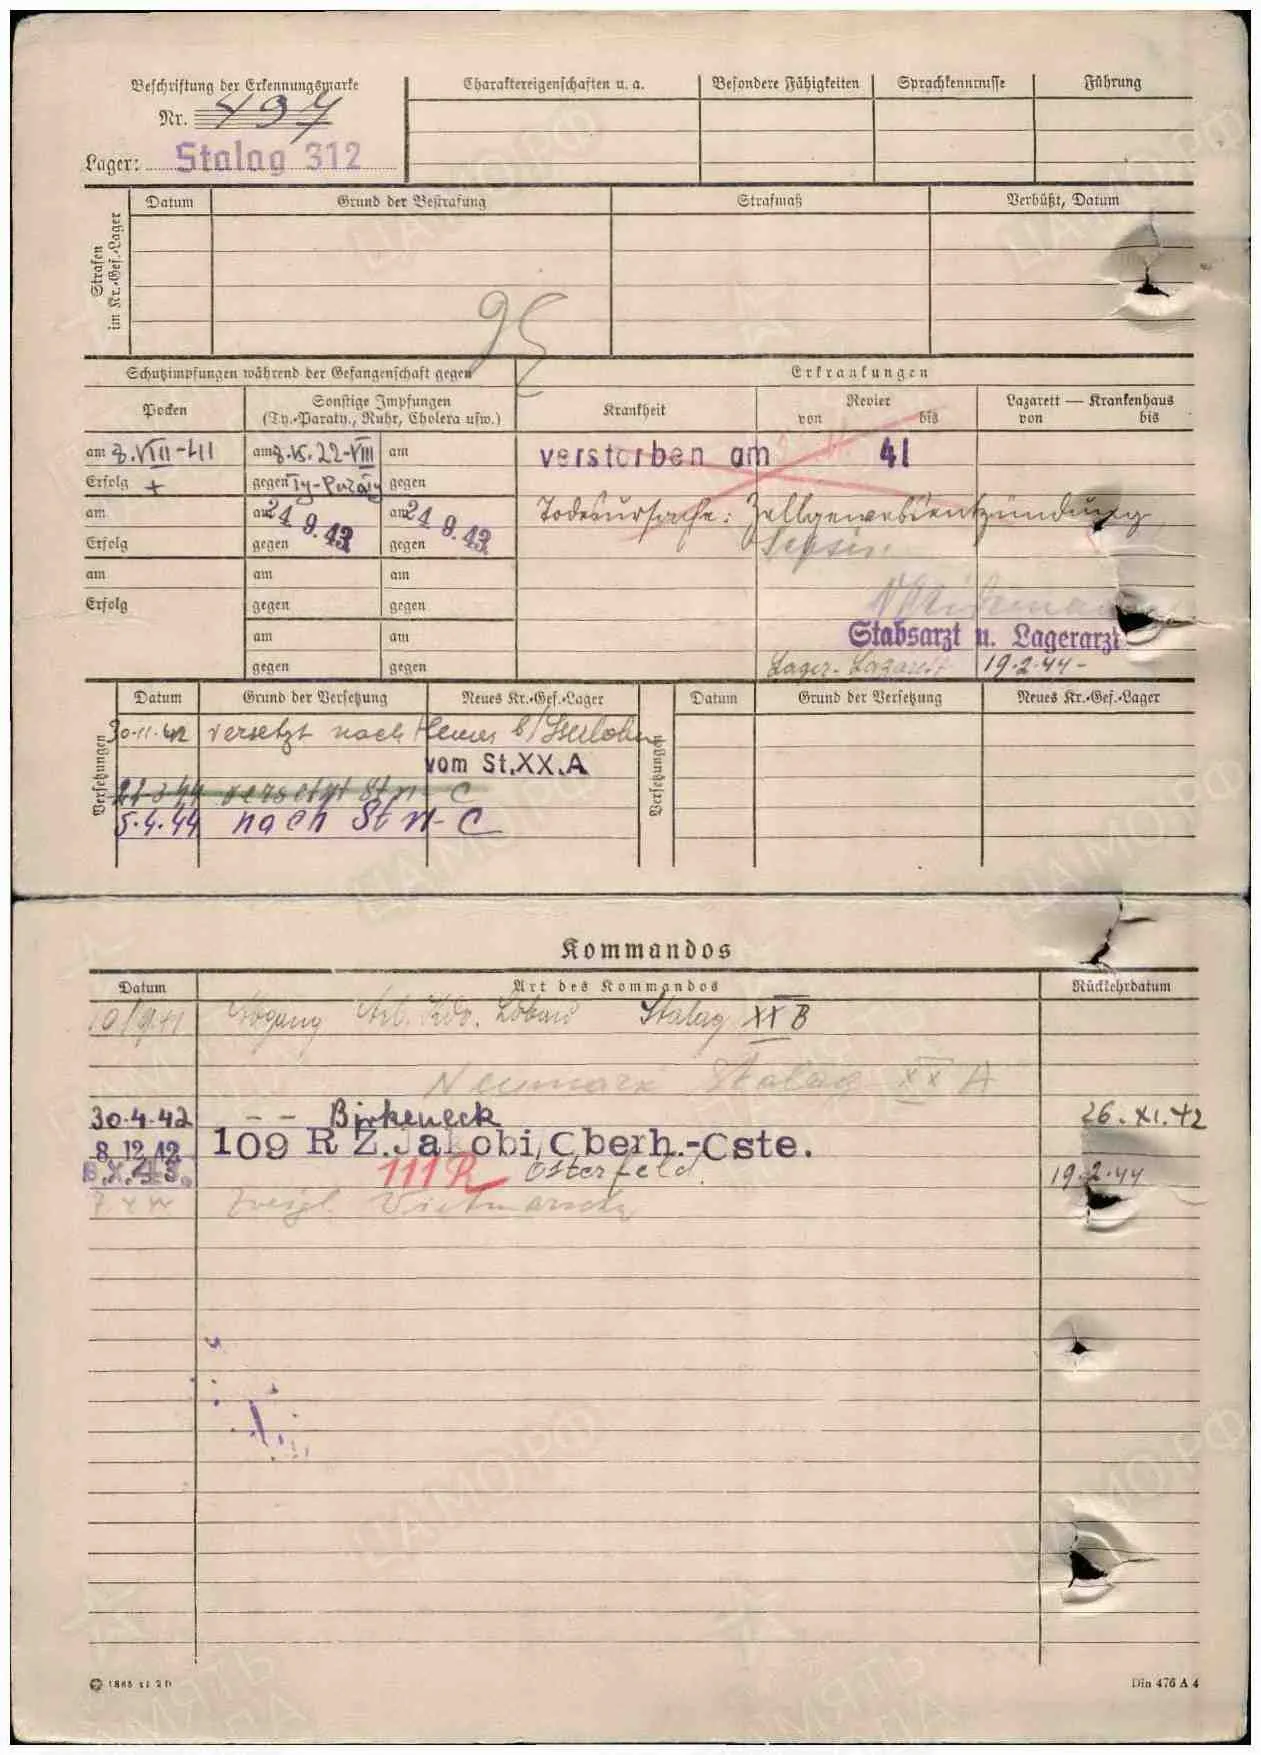 Beschriftung der Erkennungsmarke
Nr. 497
Lager: Stalag 312
Charaktereigenschaften u. a.
Besondere Fähigkeiten
Sprachkenntnisse
Führung
Strafen im Kr.-Gef.-Lager
Datum
Grund der Bestrafung
Strafmaß
Verbüßt, Datum
95
Schutzimpfungen während der Gefangenschaft gegen
Erkrankungen
Pocken
Sonstige Impfungen
(Ty.-Paraty., Ruhr, Cholera usw.)
Krankheit
Revier
von bis
Lazarett — Krankenhaus
von bis
am 8.VIII-41 am 8. 22-VIII am
Erfolg + gegen Ty-Paraty gegen
am am 24.9.43 am 24.9.43
Erfolg gegen gegen
am am am
Erfolg gegen gegen
am am
gegen gegen
verstorben am 41
Todesursache: Zellgewebsentzündung
Sepsis.
Stabsarzt u. Lagerarzt
Lager-Lazarett 19.2.44-
Versetzungen
Datum
Grund der Versetzung
Neues Kr.-Gef.-Lager
Versetzungen
Datum
Grund der Versetzung
Neues Kr.-Gef.-Lager
30-11-42 versetzt nach Hemer b/Iserlohn
vom St.XX.A
22-3-44 versetzt St VI-C
5.4.44 nach St VI-C
Kommandos
Datum
Art des Kommandos
Rückkehrdatum
10/9.41 Abgang Arb. Kdo. Löbau Stalag XX B
Neumark Stalag XX A
30.4.42 - - Birkeneck 26.XI.42
8.12.42 109 R Z.Jakobi,Oberh.-Oste.
8.X.43. 111R Osterfeld. 19.2.44
Din 476 A 4